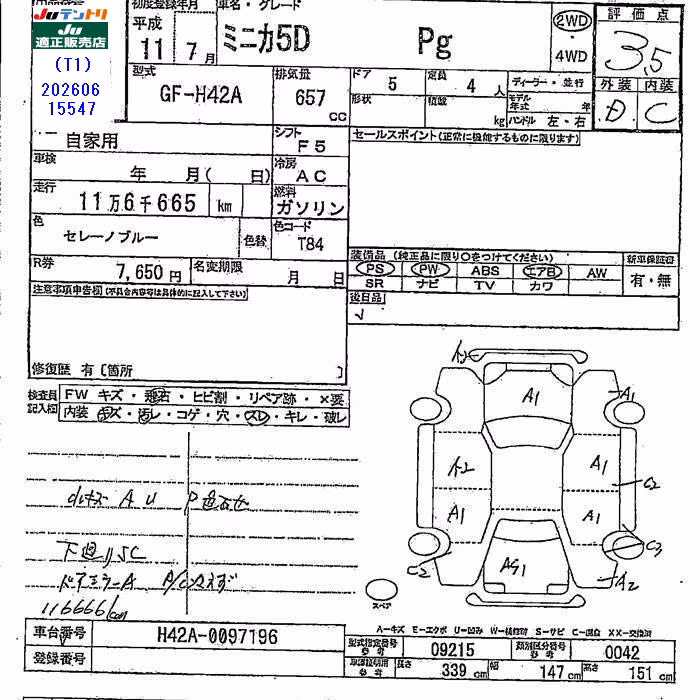 Juテントリ
Ju
適正販売店
(T1)
202606
15547
初度登録年月
平成
11
7月
車名・グレード
ミニカ5D
Pg
2WD
・
4WD
評価点
3.5
外装
内装
D
C
型式
GF-H42A
排気量
657
cc
ドア
5
定員
4人
形状
積載
kg
ディーラー・並行
モデル年式
年
ハンドル 左・右
自家用
シフト
F5
セールスポイント(正常に機能するものに限ります)
車検
年 月( 日)
冷房
AC
走行
11万6千665
km
燃料
ガソリン
色
セレーノブルー
色替
色コード
T84
装備品(純正品に限り○をつけてください)
新車保証書
PS
PW
ABS
エアB
AW
SR
ナビ
TV
カワ
有・無
R券
7,650円
名変期限
月 日
後日品
注意事項申告欄(不具合内容等は具体的に記入して下さい)
修復歴 有〔箇所 〕
検査員
記入欄
FW キズ・飛石・ヒビ割・リペア跡・×要
内装 キズ・汚レ・コゲ・穴・スレ・キレ・破レ
A1
A1
A2
A1
C2
A1
A1
C3
C2
A2
スペア
dルキズ A U
下廻りSC
ドアミラーA
116666km
A-キズ E-エクボ U-凹み S-サビ
車台番号
H42A-0097196
登録番号
型式指定番号
参考
09215
類別区分番号
参考
0042
参考
長さ
339 cm
幅
147 cm
高さ
151 cm